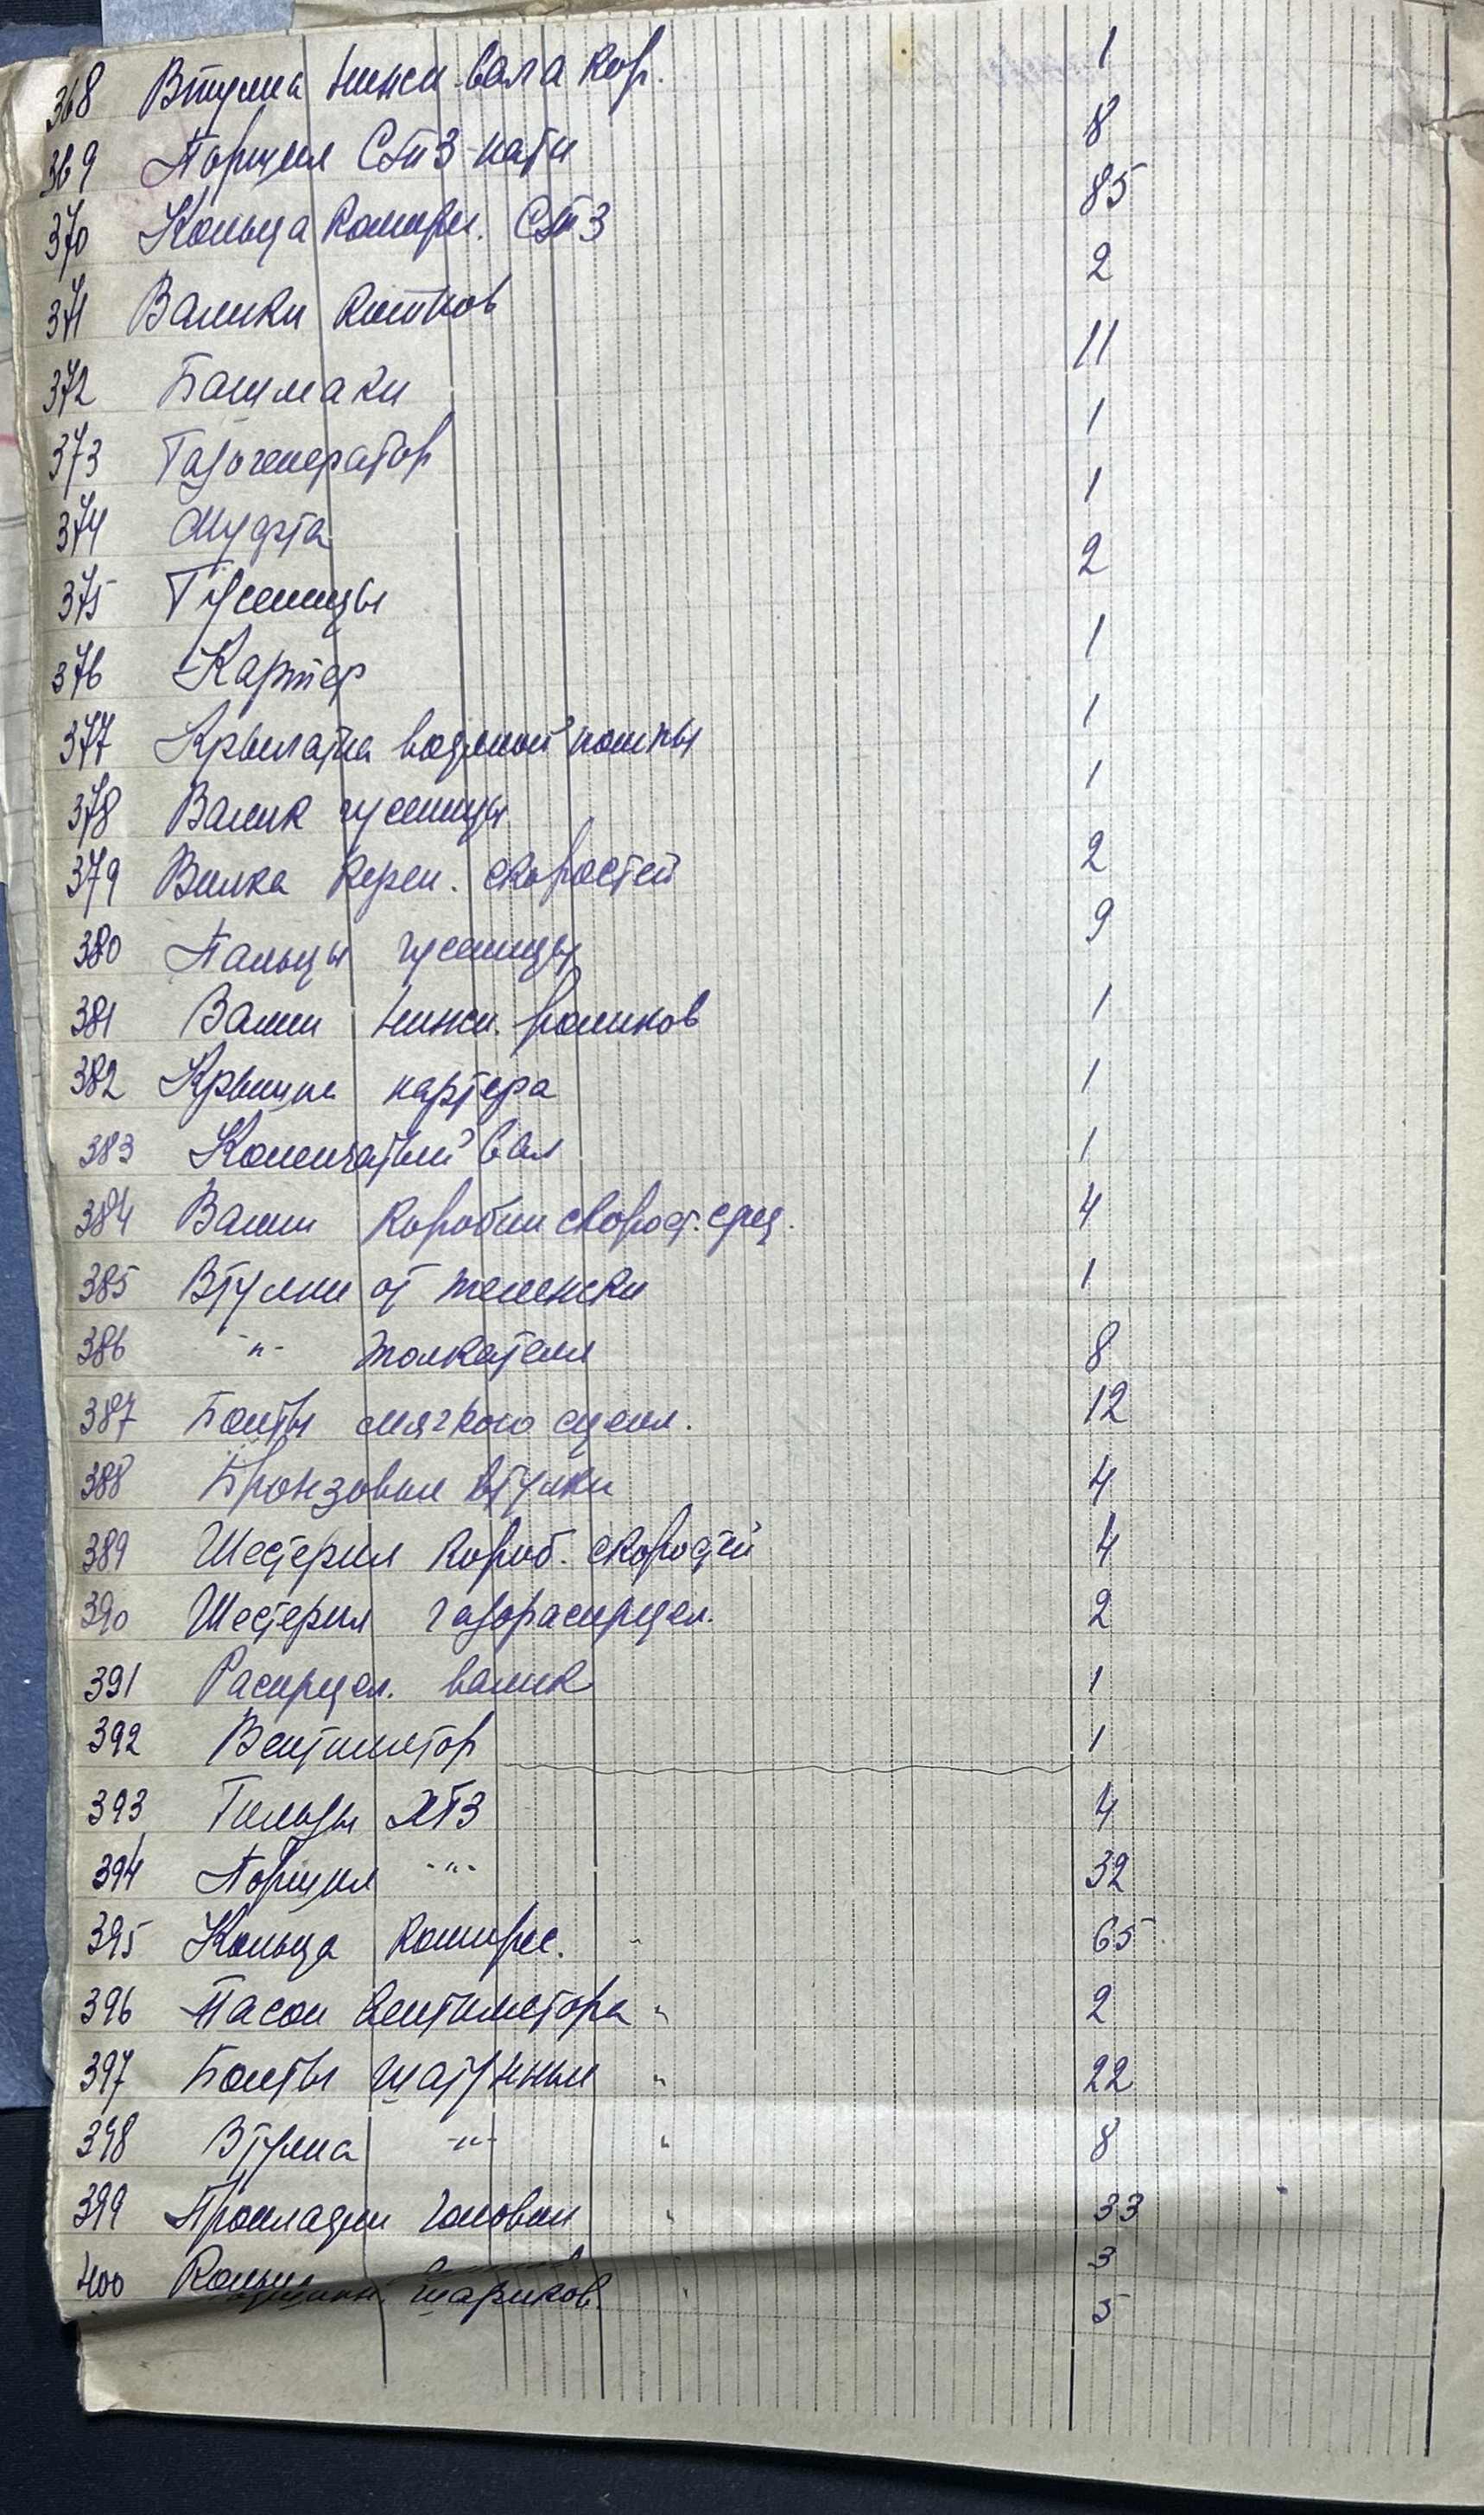 368 Втулка нижн. вала кор. 1
369 Поршня СТЗ-нати 8
370 Кольца компрес. СТЗ 85
371 Валики катков 2
372 Башмаки 11
373 Газогенератор 1
374 Муфта 1
375 Гусеницы 2
376 Картер 1
377 Крылатка водяной помпы 1
378 Валик гусеницы 1
379 Вилка перек. скоростей 2
380 Пальцы гусеницы 9
381 Валки нижн. роликов 1
382 Крышка картера 1
383 Коленчатый вал 1
384 Валки коробки скорост. 4
385 Втулки от тележки 1
386 -"- толкателя 8
387 Болты мягкого сцепл. 12
388 Бронзовые втулки 4
389 Шестерня короб. скоростей 4
390 Шестерня газораспредел. 2
391 Распредел. валик 1
392 Вентилятор 1
393 Гильзы ХТЗ 4
394 Поршня -"- 32
395 Кольца компрес. " 65
396 Пасок вентилятора " 2
397 Болты шатунные " 22
398 Втулка -"- " 8
399 Прокладки головки " 33
400 Кольца 3
шариков. " 5